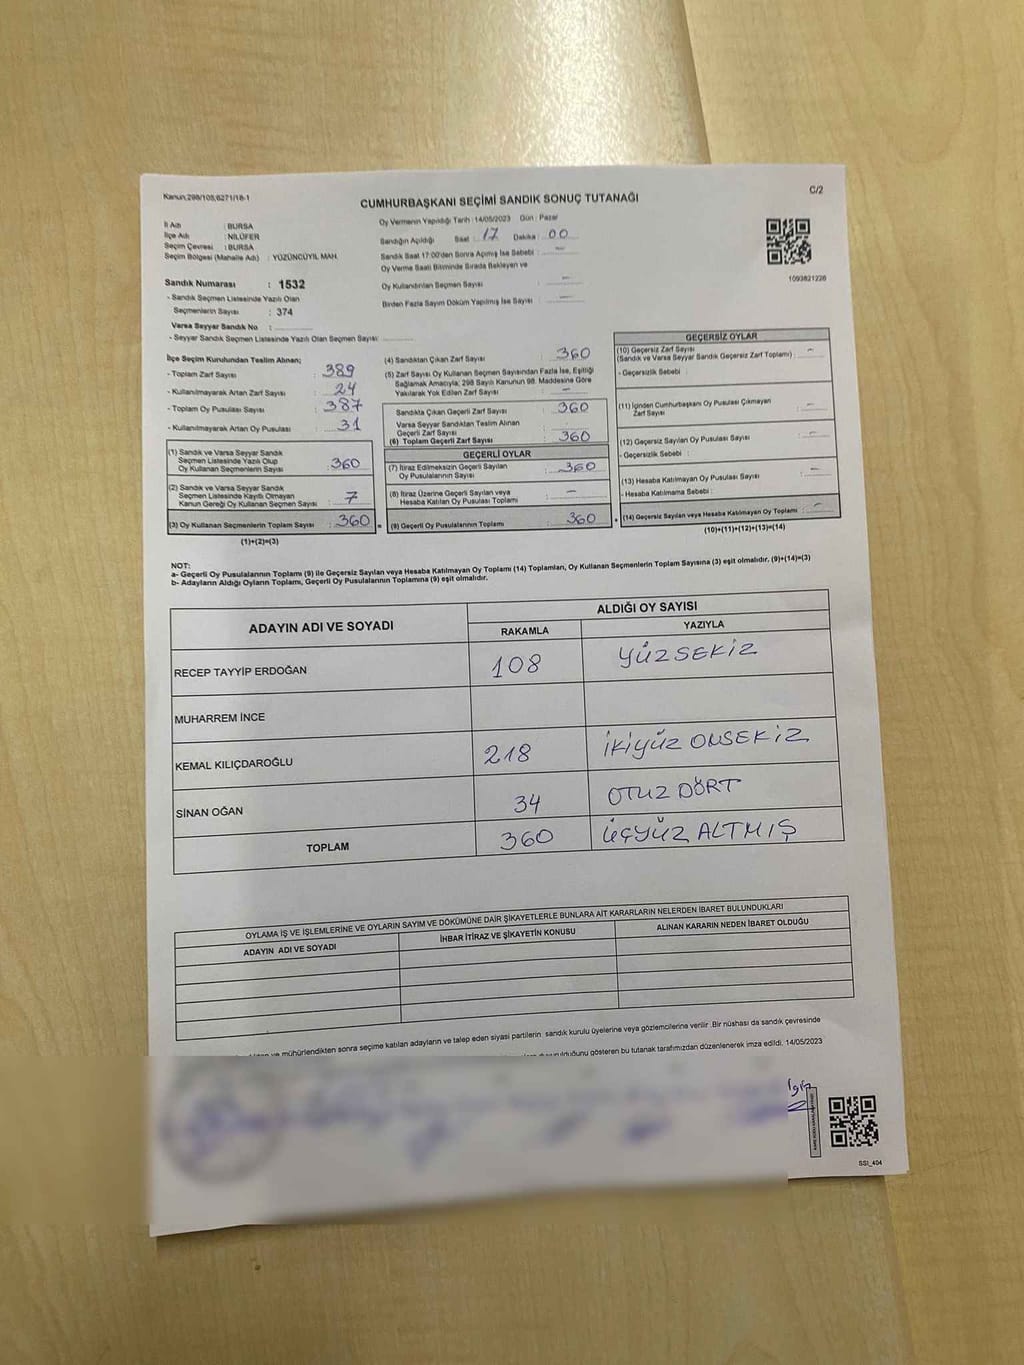 Kanun;298/105,6271/18-1
C/2
CUMHURBAŞKANI SEÇİMİ SANDIK SONUÇ TUTANAĞI
İl Adı : BURSA
İlçe Adı : NİLÜFER
Seçim Çevresi : BURSA
Seçim Bölgesi (Mahalle Adı) : YÜZÜNCÜYIL MAH.
Oy Vermenin Yapıldığı Tarih : 14/05/2023 Gün : Pazar
Sandığın Açıldığı Saat : 17 Dakika : 00
Sandık Saat 17:00'den Sonra Açılmış İse Sebebi : —
Oy Verme Saati Bitiminde Sırada Bekleyen ve
Oy Kullandırılan Seçmen Sayısı : —
Birden Fazla Sayım Döküm Yapılmış İse Sayısı : —
1093821226
Sandık Numarası : 1532
- Sandık Seçmen Listesinde Yazılı Olan
Seçmenlerin Sayısı : 374
Varsa Seyyar Sandık No :
- Seyyar Sandık Seçmen Listesinde Yazılı Olan Seçmen Sayısı:
İlçe Seçim Kurulundan Teslim Alınan;
- Toplam Zarf Sayısı : 389
- Kullanılmayarak Artan Zarf Sayısı : 24
- Toplam Oy Pusulası Sayısı : 387
- Kullanılmayarak Artan Oy Pusulası : 31
(1) Sandık ve Varsa Seyyar Sandık
Seçmen Listesinde Yazılı Olup
Oy Kullanan Seçmenlerin Sayısı : 360
(2) Sandık ve Varsa Seyyar Sandık
Seçmen Listesinde Kayıtlı Olmayan
Kanun Gereği Oy Kullanan Seçmen Sayısı : 7
(3) Oy Kullanan Seçmenlerin Toplam Sayısı : 360 =
(1)+(2)=(3)
(4) Sandıktan Çıkan Zarf Sayısı : 360
(5) Zarf Sayısı Oy Kullanan Seçmen Sayısından Fazla İse, Eşitliği
Sağlamak Amacıyla; 298 Sayılı Kanunun 98. Maddesine Göre
Yakılarak Yok Edilen Zarf Sayısı : —
Sandıkta Çıkan Geçerli Zarf Sayısı : 360
Varsa Seyyar Sandıktan Teslim Alınan
Geçerli Zarf Sayısı :
(6) Toplam Geçerli Zarf Sayısı : 360
GEÇERLİ OYLAR
(7) İtiraz Edilmeksizin Geçerli Sayılan
Oy Pusulalarının Sayısı : 360
(8) İtiraz Üzerine Geçerli Sayılan veya
Hesaba Katılan Oy Pusulası Toplamı : —
(9) Geçerli Oy Pusulalarının Toplamı : 360 +
GEÇERSİZ OYLAR
(10) Geçersiz Zarf Sayısı
(Sandık ve Varsa Seyyar Sandık Geçersiz Zarf Toplamı) : —
- Geçersizlik Sebebi :
(11) İçinden Cumhurbaşkanı Oy Pusulası Çıkmayan
Zarf Sayısı : —
(12) Geçersiz Sayılan Oy Pusulası Sayısı : —
- Geçersizlik Sebebi :
(13) Hesaba Katılmayan Oy Pusulası Sayısı : —
- Hesaba Katılmama Sebebi :
(14) Geçersiz Sayılan veya Hesaba Katılmayan Oy Toplamı : —
(10)+(11)+(12)+(13)=(14)
NOT:
a- Geçerli Oy Pusulalarının Toplamı (9) ile Geçersiz Sayılan veya Hesaba Katılmayan Oy Toplamı (14) Toplamları, Oy Kullanan Seçmenlerin Toplam Sayısına (3) eşit olmalıdır. (9)+(14)=(3)
b- Adayların Aldığı Oyların Toplamı, Geçerli Oy Pusulalarının Toplamına (9) eşit olmalıdır.
ADAYIN ADI VE SOYADI
ALDIĞI OY SAYISI
RAKAMLA YAZIYLA
RECEP TAYYİP ERDOĞAN 108 YÜZSEKİZ
MUHARREM İNCE
KEMAL KILIÇDAROĞLU 218 İKİYÜZ ONSEKİZ
SİNAN OĞAN 34 OTUZ DÖRT
TOPLAM 360 ÜÇYÜZ ALTMIŞ
OYLAMA İŞ VE İŞLEMLERİNE VE OYLARIN SAYIM VE DÖKÜMÜNE DAİR ŞİKAYETLERLE BUNLARA AİT KARARLARIN NELERDEN İBARET BULUNDUKLARI
ADAYIN ADI VE SOYADI İHBAR İTİRAZ VE ŞİKAYETİN KONUSU ALINAN KARARIN NEDEN İBARET OLDUĞU
ve mühürlendikten sonra seçime katılan adayların ve talep eden siyasi partilerin sandık kurulu üyelerine veya gözlemcilerine verilir .Bir nüshası da sandık çevresinde
gösteren bu tutanak tarafımızdan düzenlenerek imza edildi. 14/05/2023
SSI_404